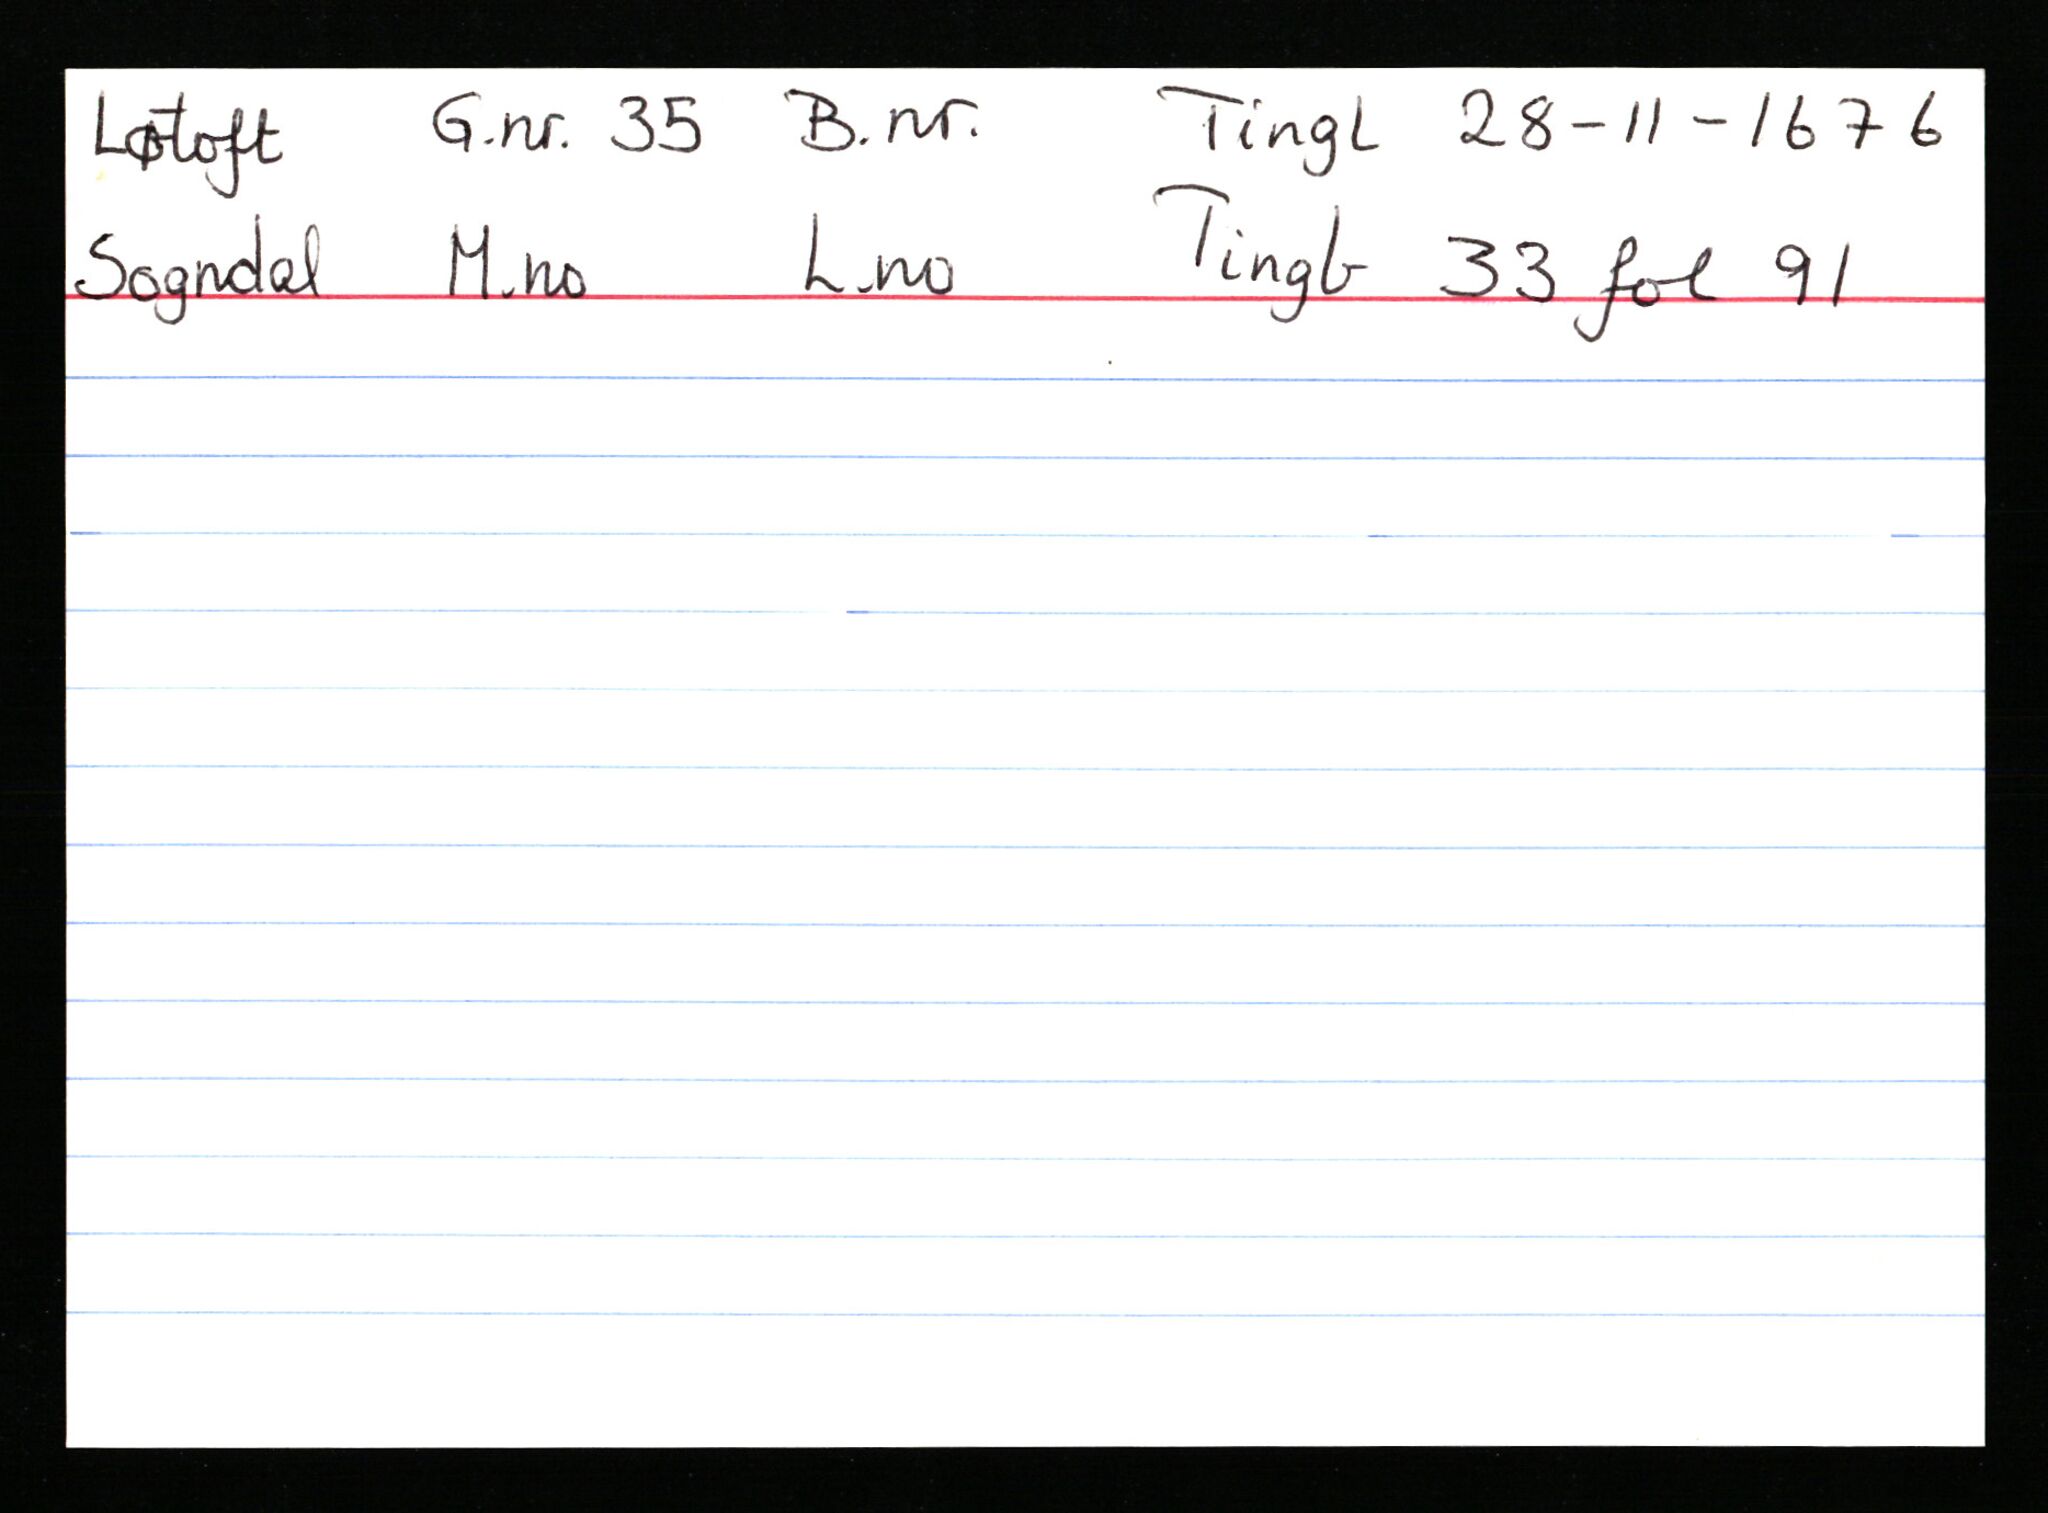 Løtoft G.nr. 35 B.nr. Tingl 28-11-1676
Sogndal M.no L.no Tingb 33 fol 91